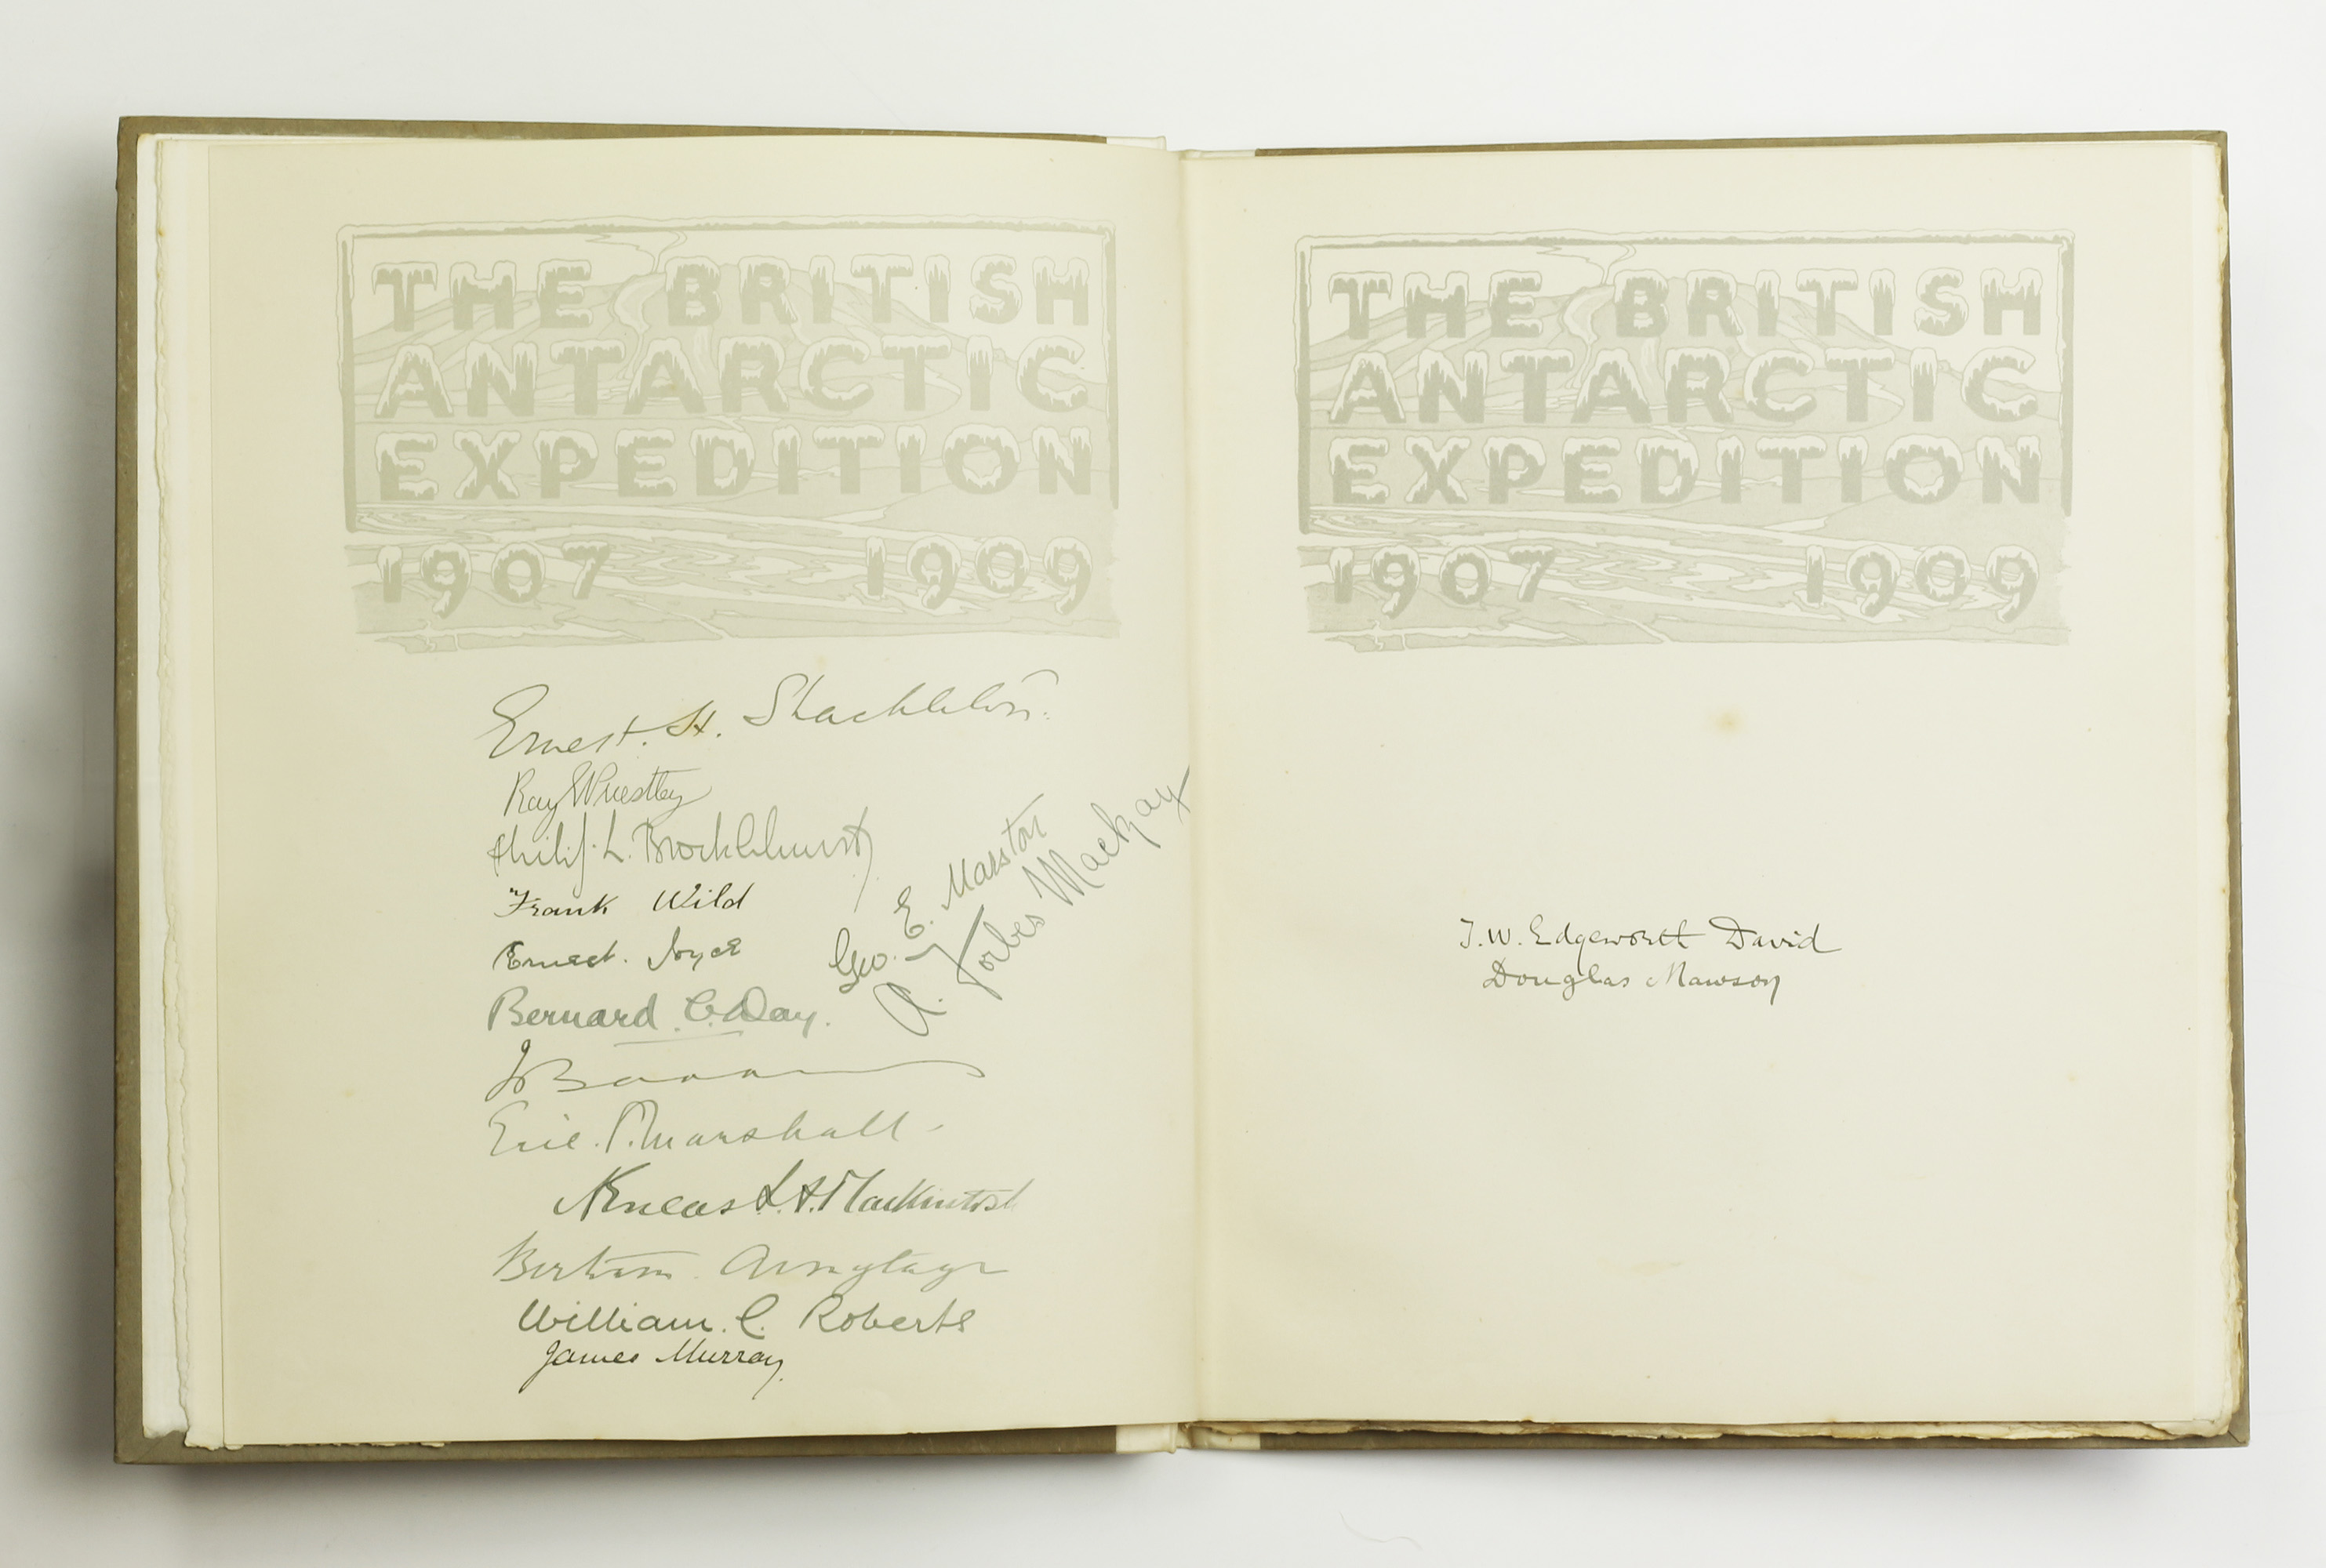 THE BRITISH
ANTARCTIC
EXPEDITION
1907 1909
Ernest. H. Shackleton.
Ray E Priestley
Philip. L. Brocklehurst
Frank Wild
Ernest. Joyce
Bernard. C. Day.
Geo. E. Marston
A. Forbes Mackay
Eric. P. Marshall
Aeneas L. A. Mackintosh
Bertram Armytage
William. C. Roberts
James Murray.
THE BRITISH
ANTARCTIC
EXPEDITION
1907 1909
T. W. Edgeworth David
Douglas Mawson